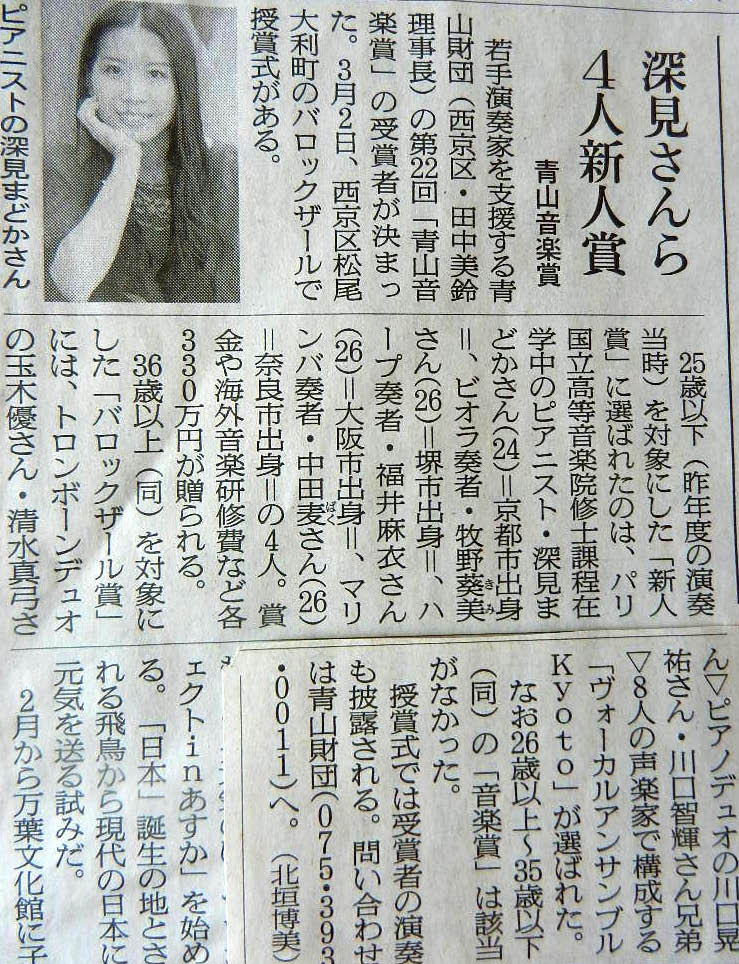 深見さんら
4人新人賞
青山音楽賞
若手演奏家を支援する青
山財団(西京区・田中美鈴
理事長)の第22回「青山音
楽賞」の受賞者が決まっ
た。3月2日、西京区松尾
大利町のバロックザールで
授賞式がある。
ピアニストの深見まどかさん
25歳以下(昨年度の演奏
当時)を対象にした「新人
賞」に選ばれたのは、パリ
国立高等音楽院修士課程在
学中のピアニスト・深見ま
どかさん(24)=京都市出身
=、ビオラ奏者・牧野葵美
きみ
さん(26)=堺市出身=、ハ
ープ奏者・福井麻衣さん
(26)=大阪市出身=、マリ
ンバ奏者・中田麦さん(26)
ばく
=奈良市出身=の4人。賞
金や海外音楽研修費など各
330万円が贈られる。
36歳以上(同)を対象に
した「バロックザール賞」
には、トロンボーンデュオ
の玉木優さん・清水真弓さ
ん▽ピアノデュオの川口晃
祐さん・川口智輝さん兄弟
▽8人の声楽家で構成する
「ヴォーカルアンサンブル
Kyoto」が選ばれた。
なお26歳以上〜35歳以下
(同)の「音楽賞」は該当
がなかった。
授賞式では受賞者の演奏
も披露される。問い合わせ
は青山財団(075・393
・0011)へ。(北垣博美)
ェクトinあすか」を始め
る。「日本」誕生の地とさ
れる飛鳥から現代の日本に
元気を送る試みだ。
2月から万葉文化館に子